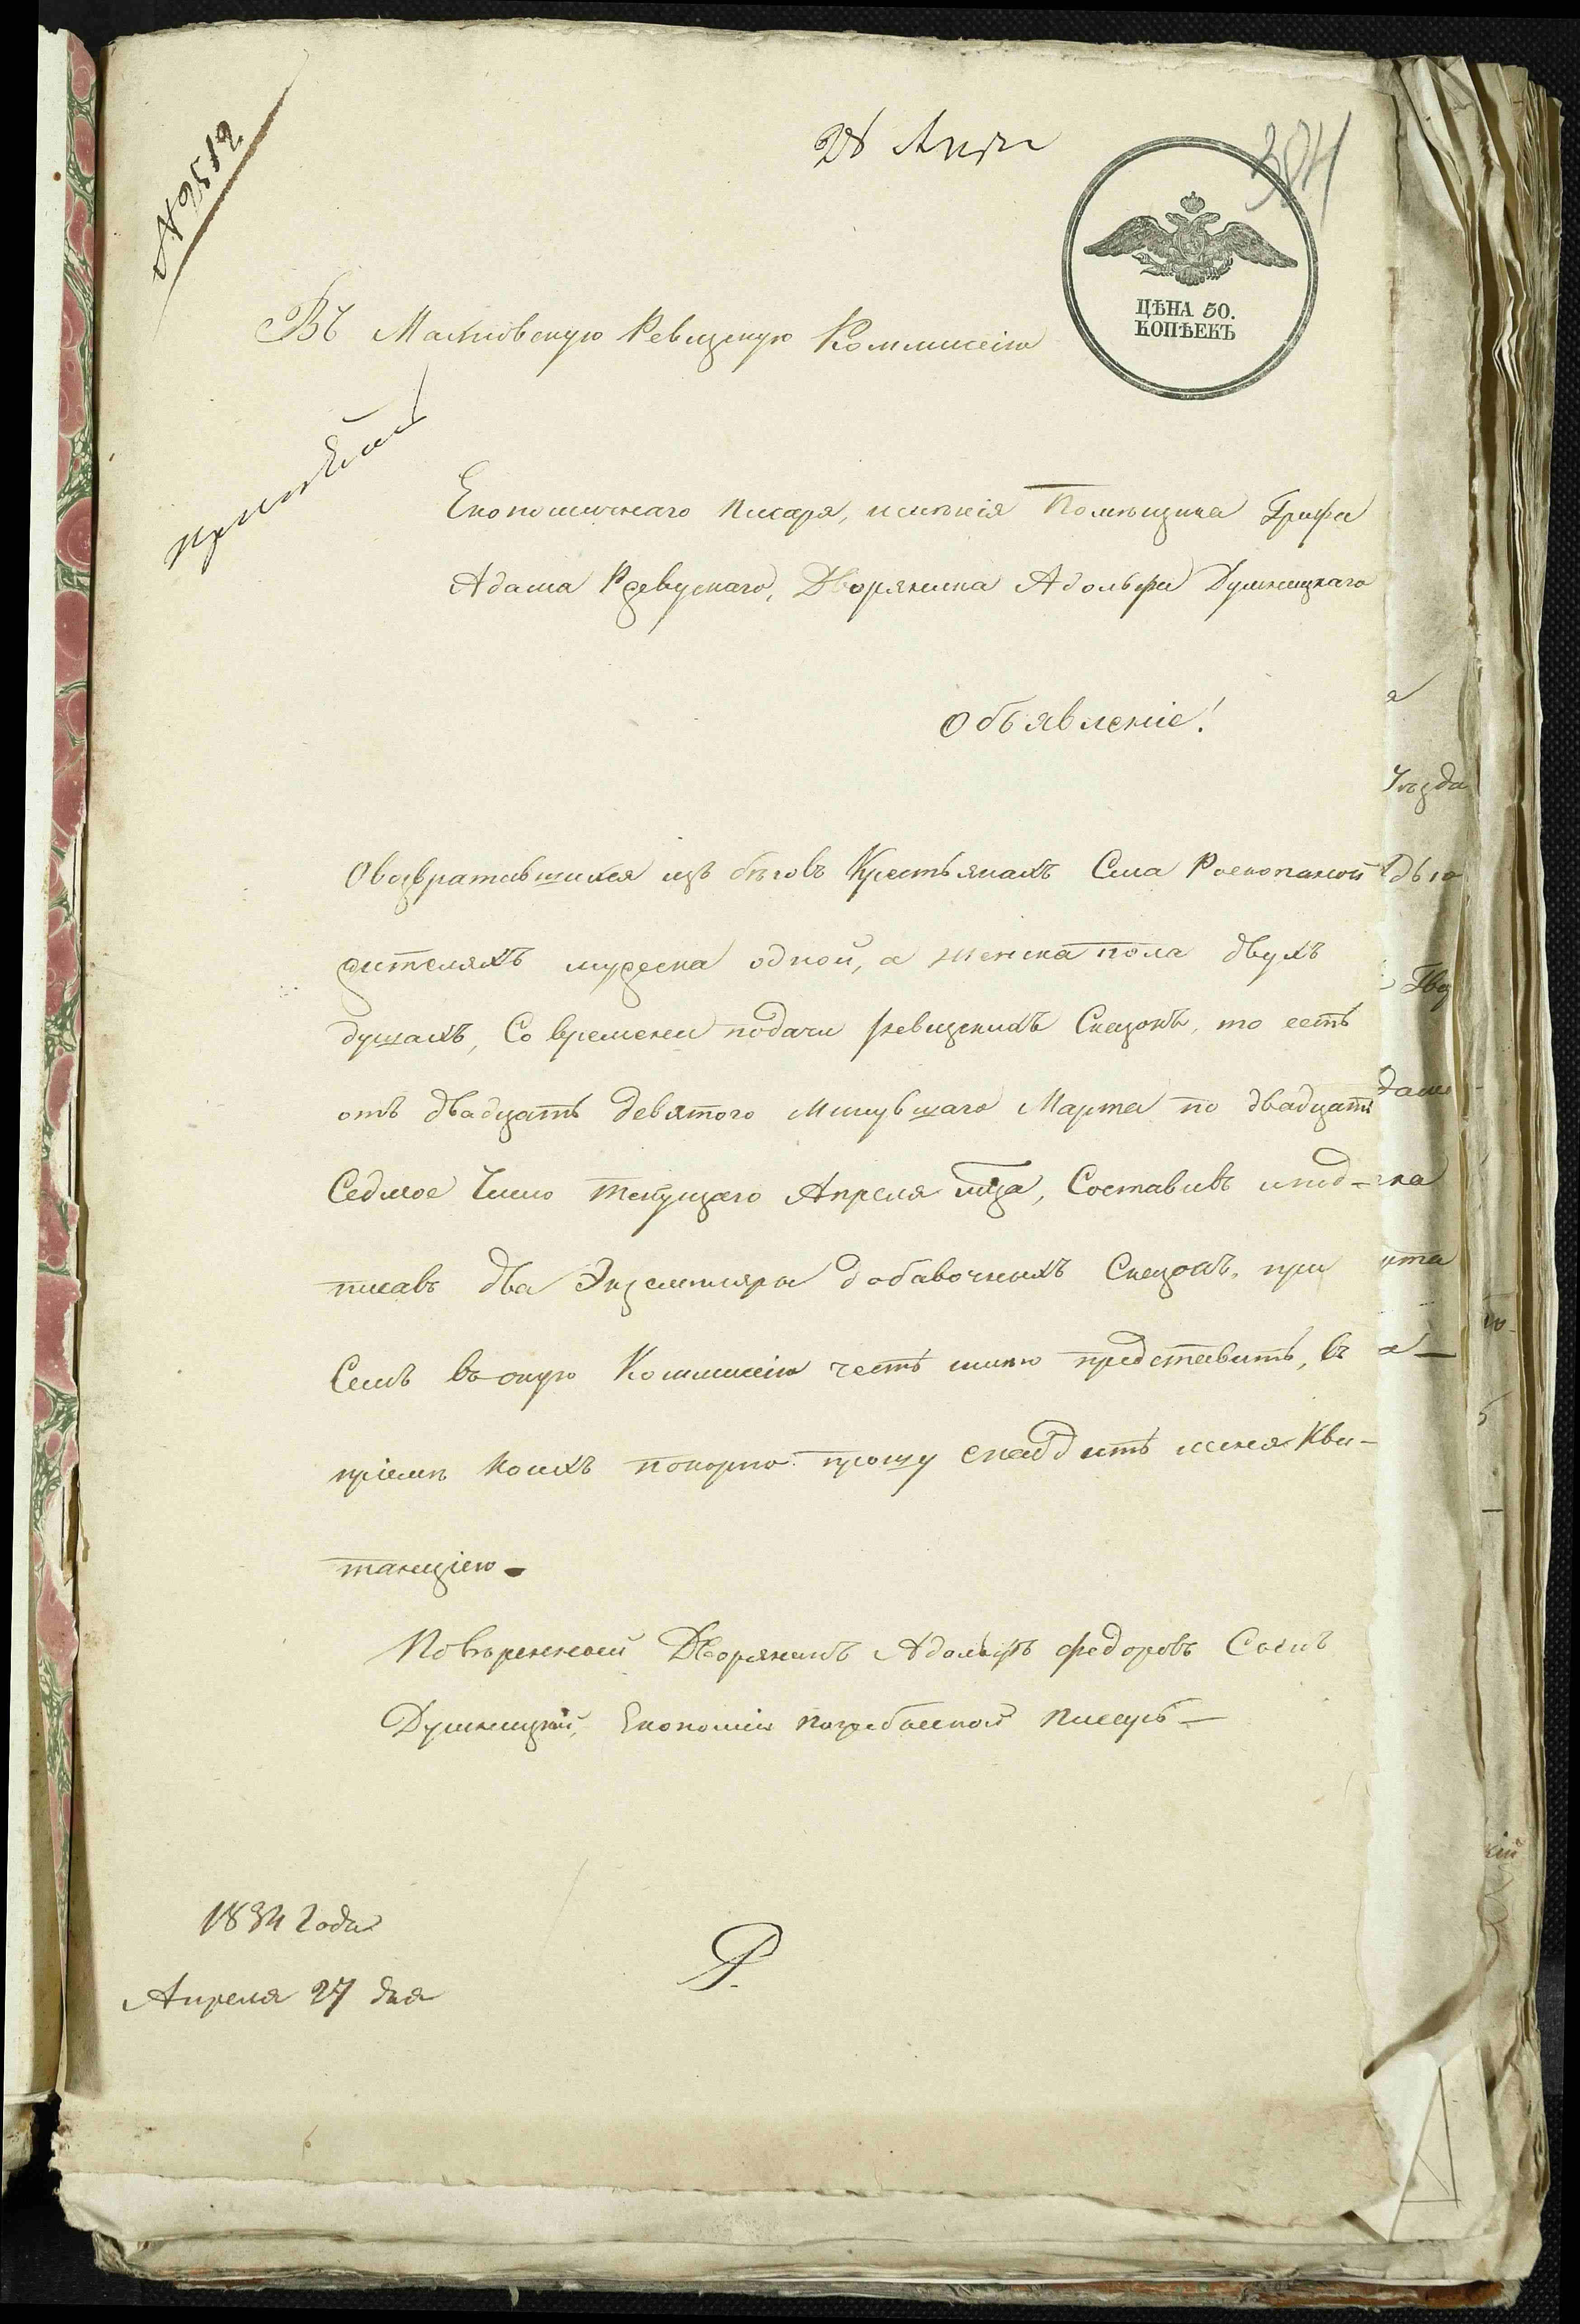 № 9512
28 Апре
304
ЦѢНА 50.
КОПѢЕКЪ
Въ Махновскую Ревизскую Коммисію
Економичнаго писаря, имѣнія Помѣщика Графа
Адама Ржевускаго, Дворянина Адольфа Душницкаго
Объявленіе!
О возвратившихся изъ бѣговъ Крестьянахъ Села Роскопаной
жителяхъ мужеска одной, а женска пола двухъ
душахъ, Со времени подачи ревизскихъ Сказокъ, то есть
отъ двадцать девятого минувшаго Марта по двадцать
Седмое Число текущаго Апреля мца, Составивъ и под-
писавъ два Экземпляра добавочныхъ Сказокъ, при
Семъ въ оную Коммисію честь имѣю представить, въ
пріемѣ коихъ покорно прошу снабдить меня Кви-
танціею
Повѣренный Дворянинъ Адольфъ Федоровъ Сынъ
Душницкій, Економіи Погребыской Писарь
1834 Года
Апреля 27 дня
Р.